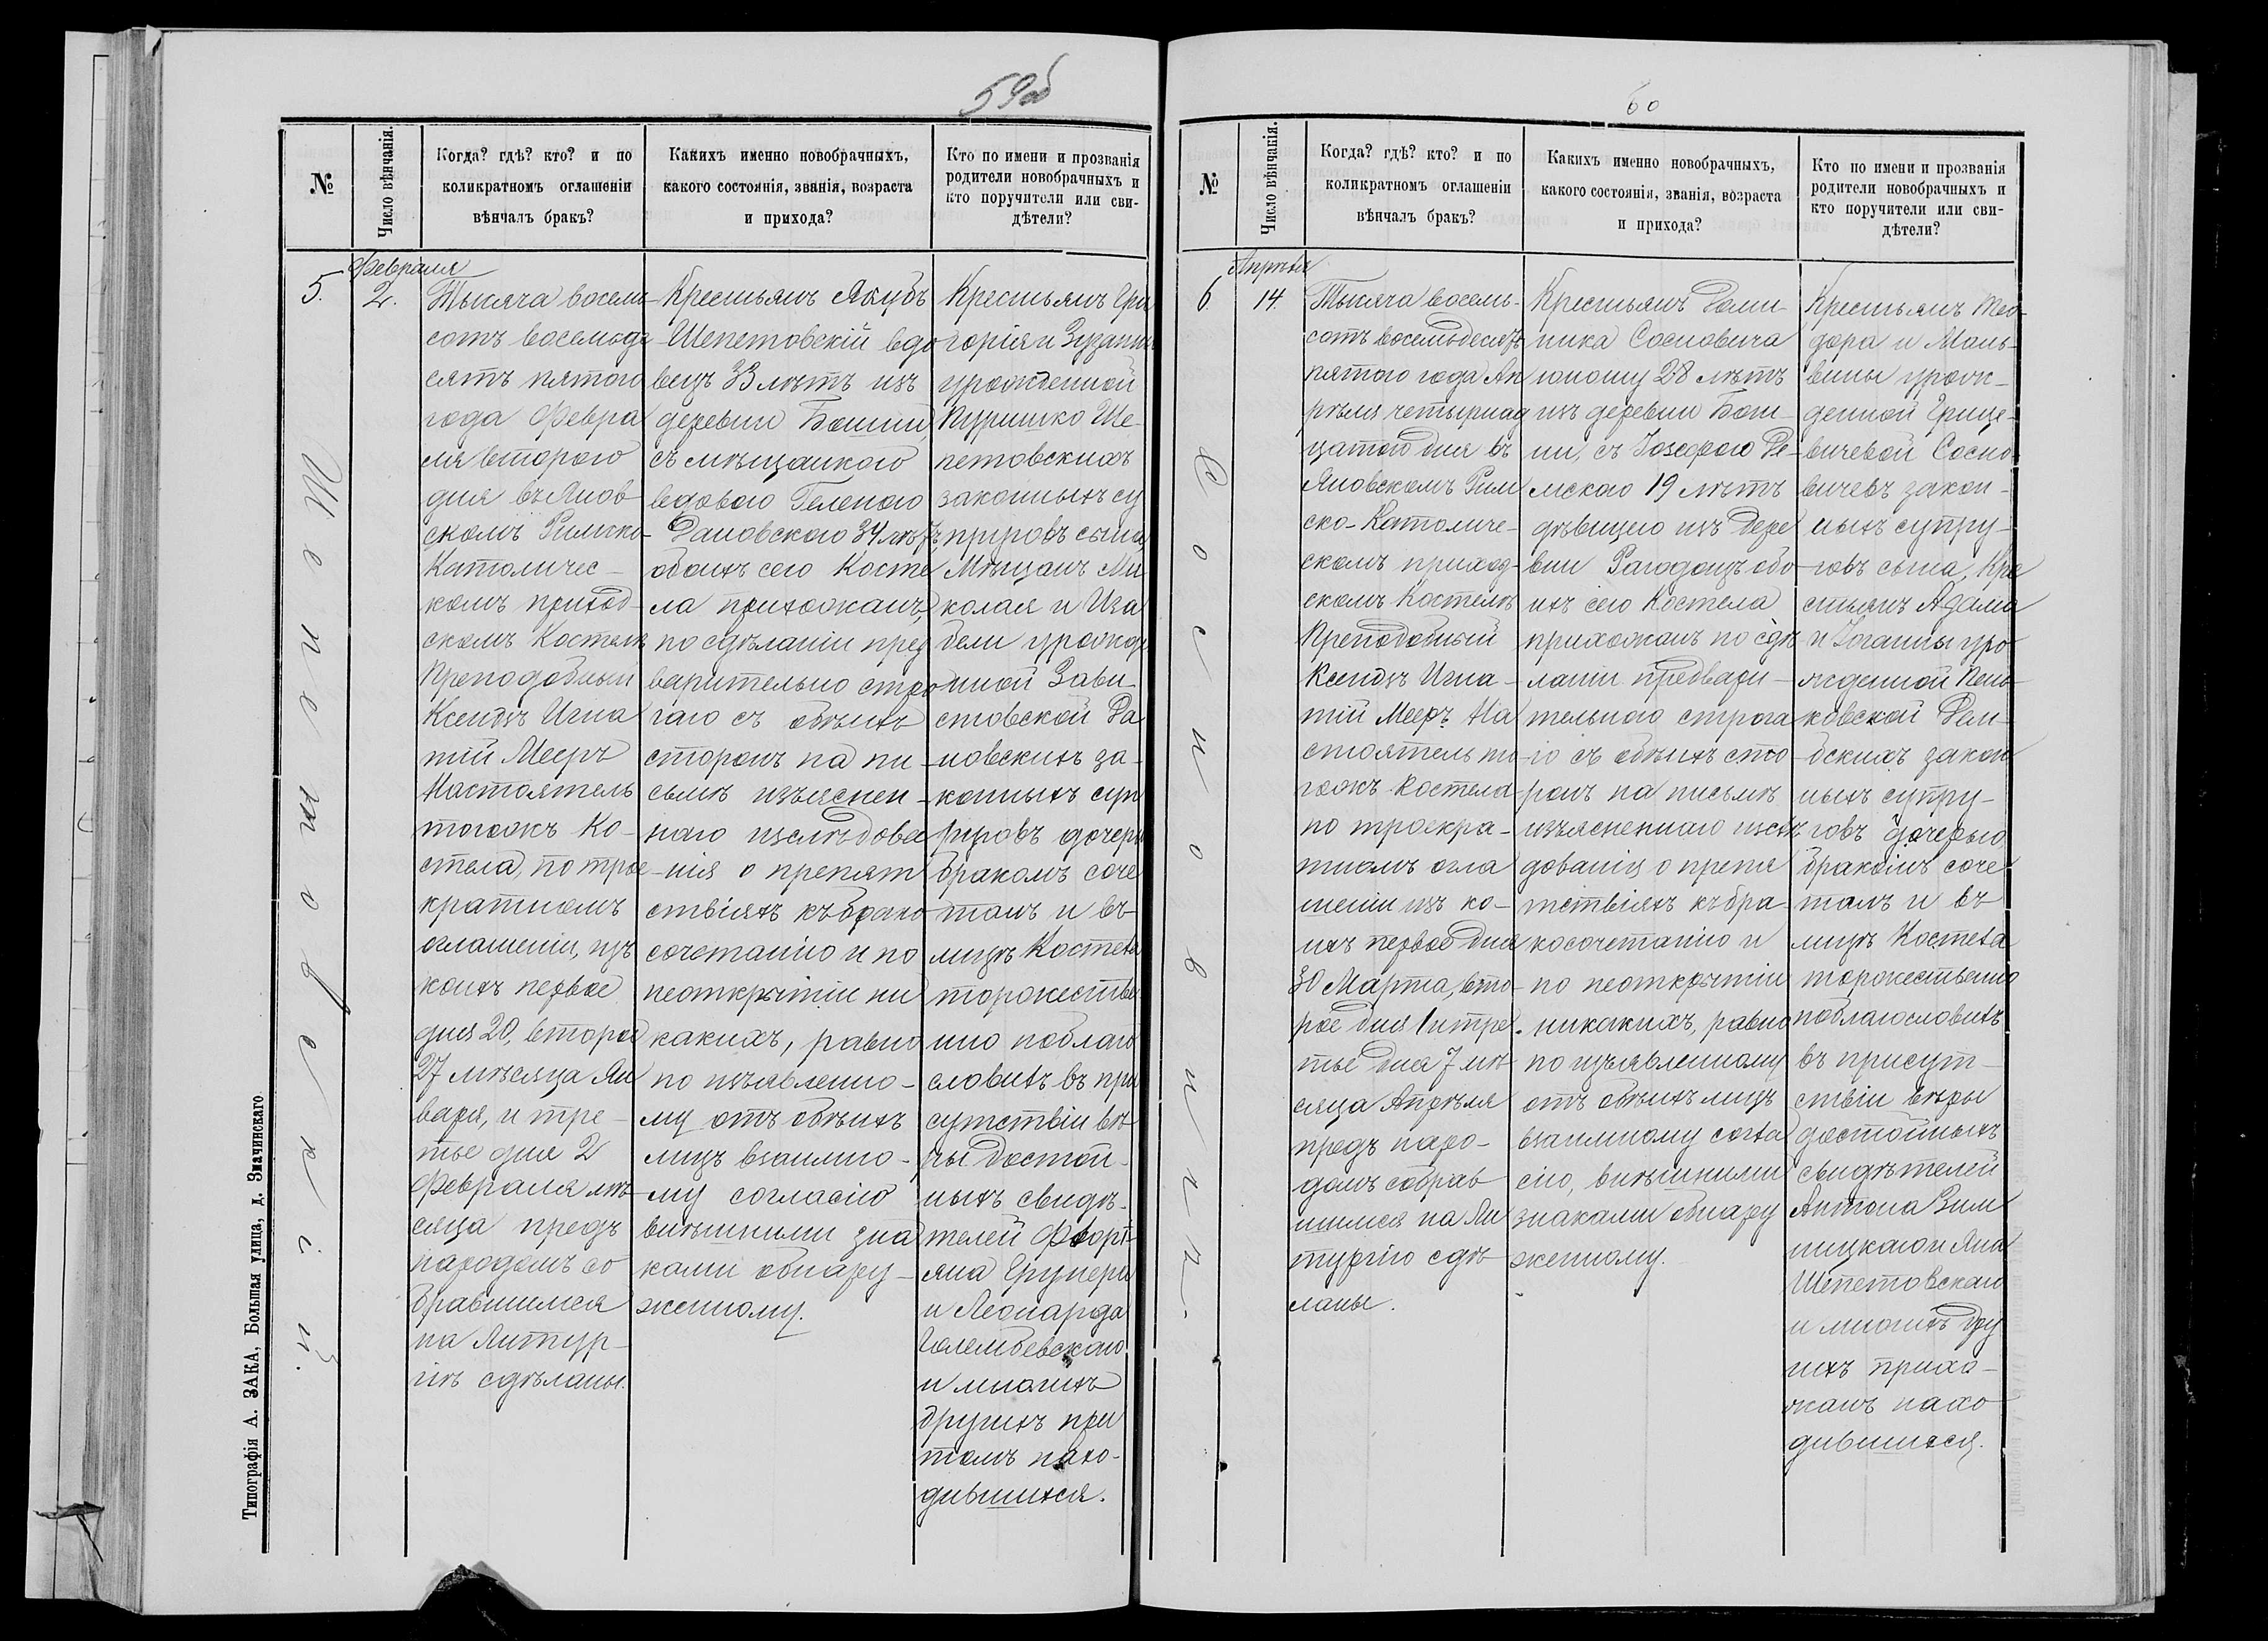 59об
№
Число вѣнчанія.
Когда? гдѣ? кто? и по
коликратномъ оглашеніи
вѣнчалъ бракъ?
Какихъ именно новобрачныхъ,
какого состоянія, званія, возраста
и прихода?
Кто по имени и прозванія
родители новобрачныхъ и
кто поручители или сви-
дѣтели?
5.
Февраля
2.
Шепетовскій.
Тысяча восемь-
сотъ восемьде
сятъ пятого
года Февра
ля второго
дня въ Янов
скомъ Римско-
Католичес-
комъ приход-
скомъ Костелѣ
Преподобный
Ксендзъ Игна
тій Мееръ
Настоятель
тогожъ Ко-
стела, по трое-
кратномъ
оглашеніи, изъ
коихъ первое
дня 20, второе
27 мѣсяца Ян
варя, и тре-
тье дня 2
Февраля мѣ-
сяца предъ
народомъ со
бравшимся
на Литур-
гіѣ сдѣланы.
Крестьянъ Якубъ
Шепетовскій вдо
вецъ 33 лѣтъ изъ
деревни Башни,
съ мѣщанкою
вдовою Геленою
Дановскою 34 лѣтъ,
обоихъ сего Косте
ла прихожанъ,
по сдѣланіи пред
варительно стро
гаго съ обѣихъ
сторонъ на пи-
сьмѣ изъяснен-
наго изслѣдова
нія о препят
ствіяхъ къ брако
сочетанію и по
неоткрытіи ни
какихъ, равно
по изъявленно-
му отъ обѣихъ
лицъ взаимно-
му согласію
внѣшними зна
ками обнару-
женному.
Крестьянъ Гри
горія и Зузанны
урожденной
Куришко Ше-
петовскихъ
законныхъ су
пруговъ сына,
Мѣщанъ Ни
колая и Иза
бели урожде
нной Зави-
стовской Да
новскихъ за-
конныхъ суп
руговъ дочерью
бракомъ соче
талъ и въ
лицѣ Костела
торжестве
нно поблаго
словилъ въ при
сутствіи вѣ-
ры достой-
ныхъ свидѣ-
телей Флорі-
яна
и Леонарда
Голембевскаго
и многихъ
другихъ при
томъ нахо-
дившихся.
Типографія А. ЗАКА, Большая улица, д. Значинскаго.
60
№
Число вѣнчанія.
Когда? гдѣ? кто? и по
коликратномъ оглашеніи
вѣнчалъ бракъ?
Какихъ именно новобрачныхъ,
какого состоянія, званія, возраста
и прихода?
Кто по имени и прозванія
родители новобрачныхъ и
кто поручители или сви-
дѣтели?
6.
Апрѣля
14.
Сосновичъ.
Тысяча восемь-
сотъ восемьдесятъ
пятого года Ап
рѣля четырнад
цатого дня въ
Яновскомъ Рим
ско-Католиче-
скомъ приход-
скомъ Костелѣ
Преподобный
Ксендзъ Игна-
тій Мееръ На
стоятель то-
гожъ Костела
по троекра-
тномъ огла
шеніи изъ ко-
ихъ первое дня
30 Марта, вто-
рое дня 1 и тре-
тье дня 7 мѣ-
сяца Апрѣля
предъ наро-
домъ собрав
шимся на Ли
тургію сдѣ-
ланы.
Крестьянъ Доми-
ника Сосновича
юношу 28 лѣтъ
изъ деревни Баш-
ни, съ Іозефою Де-
мскою 19 лѣтъ
дѣвицею изъ дере
вни Рагодощъ обо-
ихъ сего Костела
прихожанъ по сдѣ
ланіи предвари-
тельного строга
го съ обѣихъ сто-
ронъ на письмѣ
изъясненнаго изслѣ
дованія о препя
тствіяхъ къ бра-
косочетанію и
по неоткрытіи
никакихъ, равно
по изъявленному
отъ обѣихъ лицъ
взаимному согла
сію, внѣшними
знаками обнару
женному.
Крестьянъ Тео-
дора и Маль-
вины урож-
денной Грице-
вичевой Сосно
вичевъ закон-
ныхъ супру-
говъ сына, Кре
стьянъ Адама
и Іоганны уро
жденной Пень-
ковской Дем-
бскихъ закон
ныхъ супру-
говъ дочерью
бракомъ соче-
талъ и въ
лицѣ Костела
торжественно
поблагословилъ
въ присут-
ствіи вѣры
достойныхъ
свидѣтелей
Антона Зим
ницкаго и Яна
Шепетовскаго
и многихъ дру
гихъ прихо-
жанъ нахо-
дившихся.